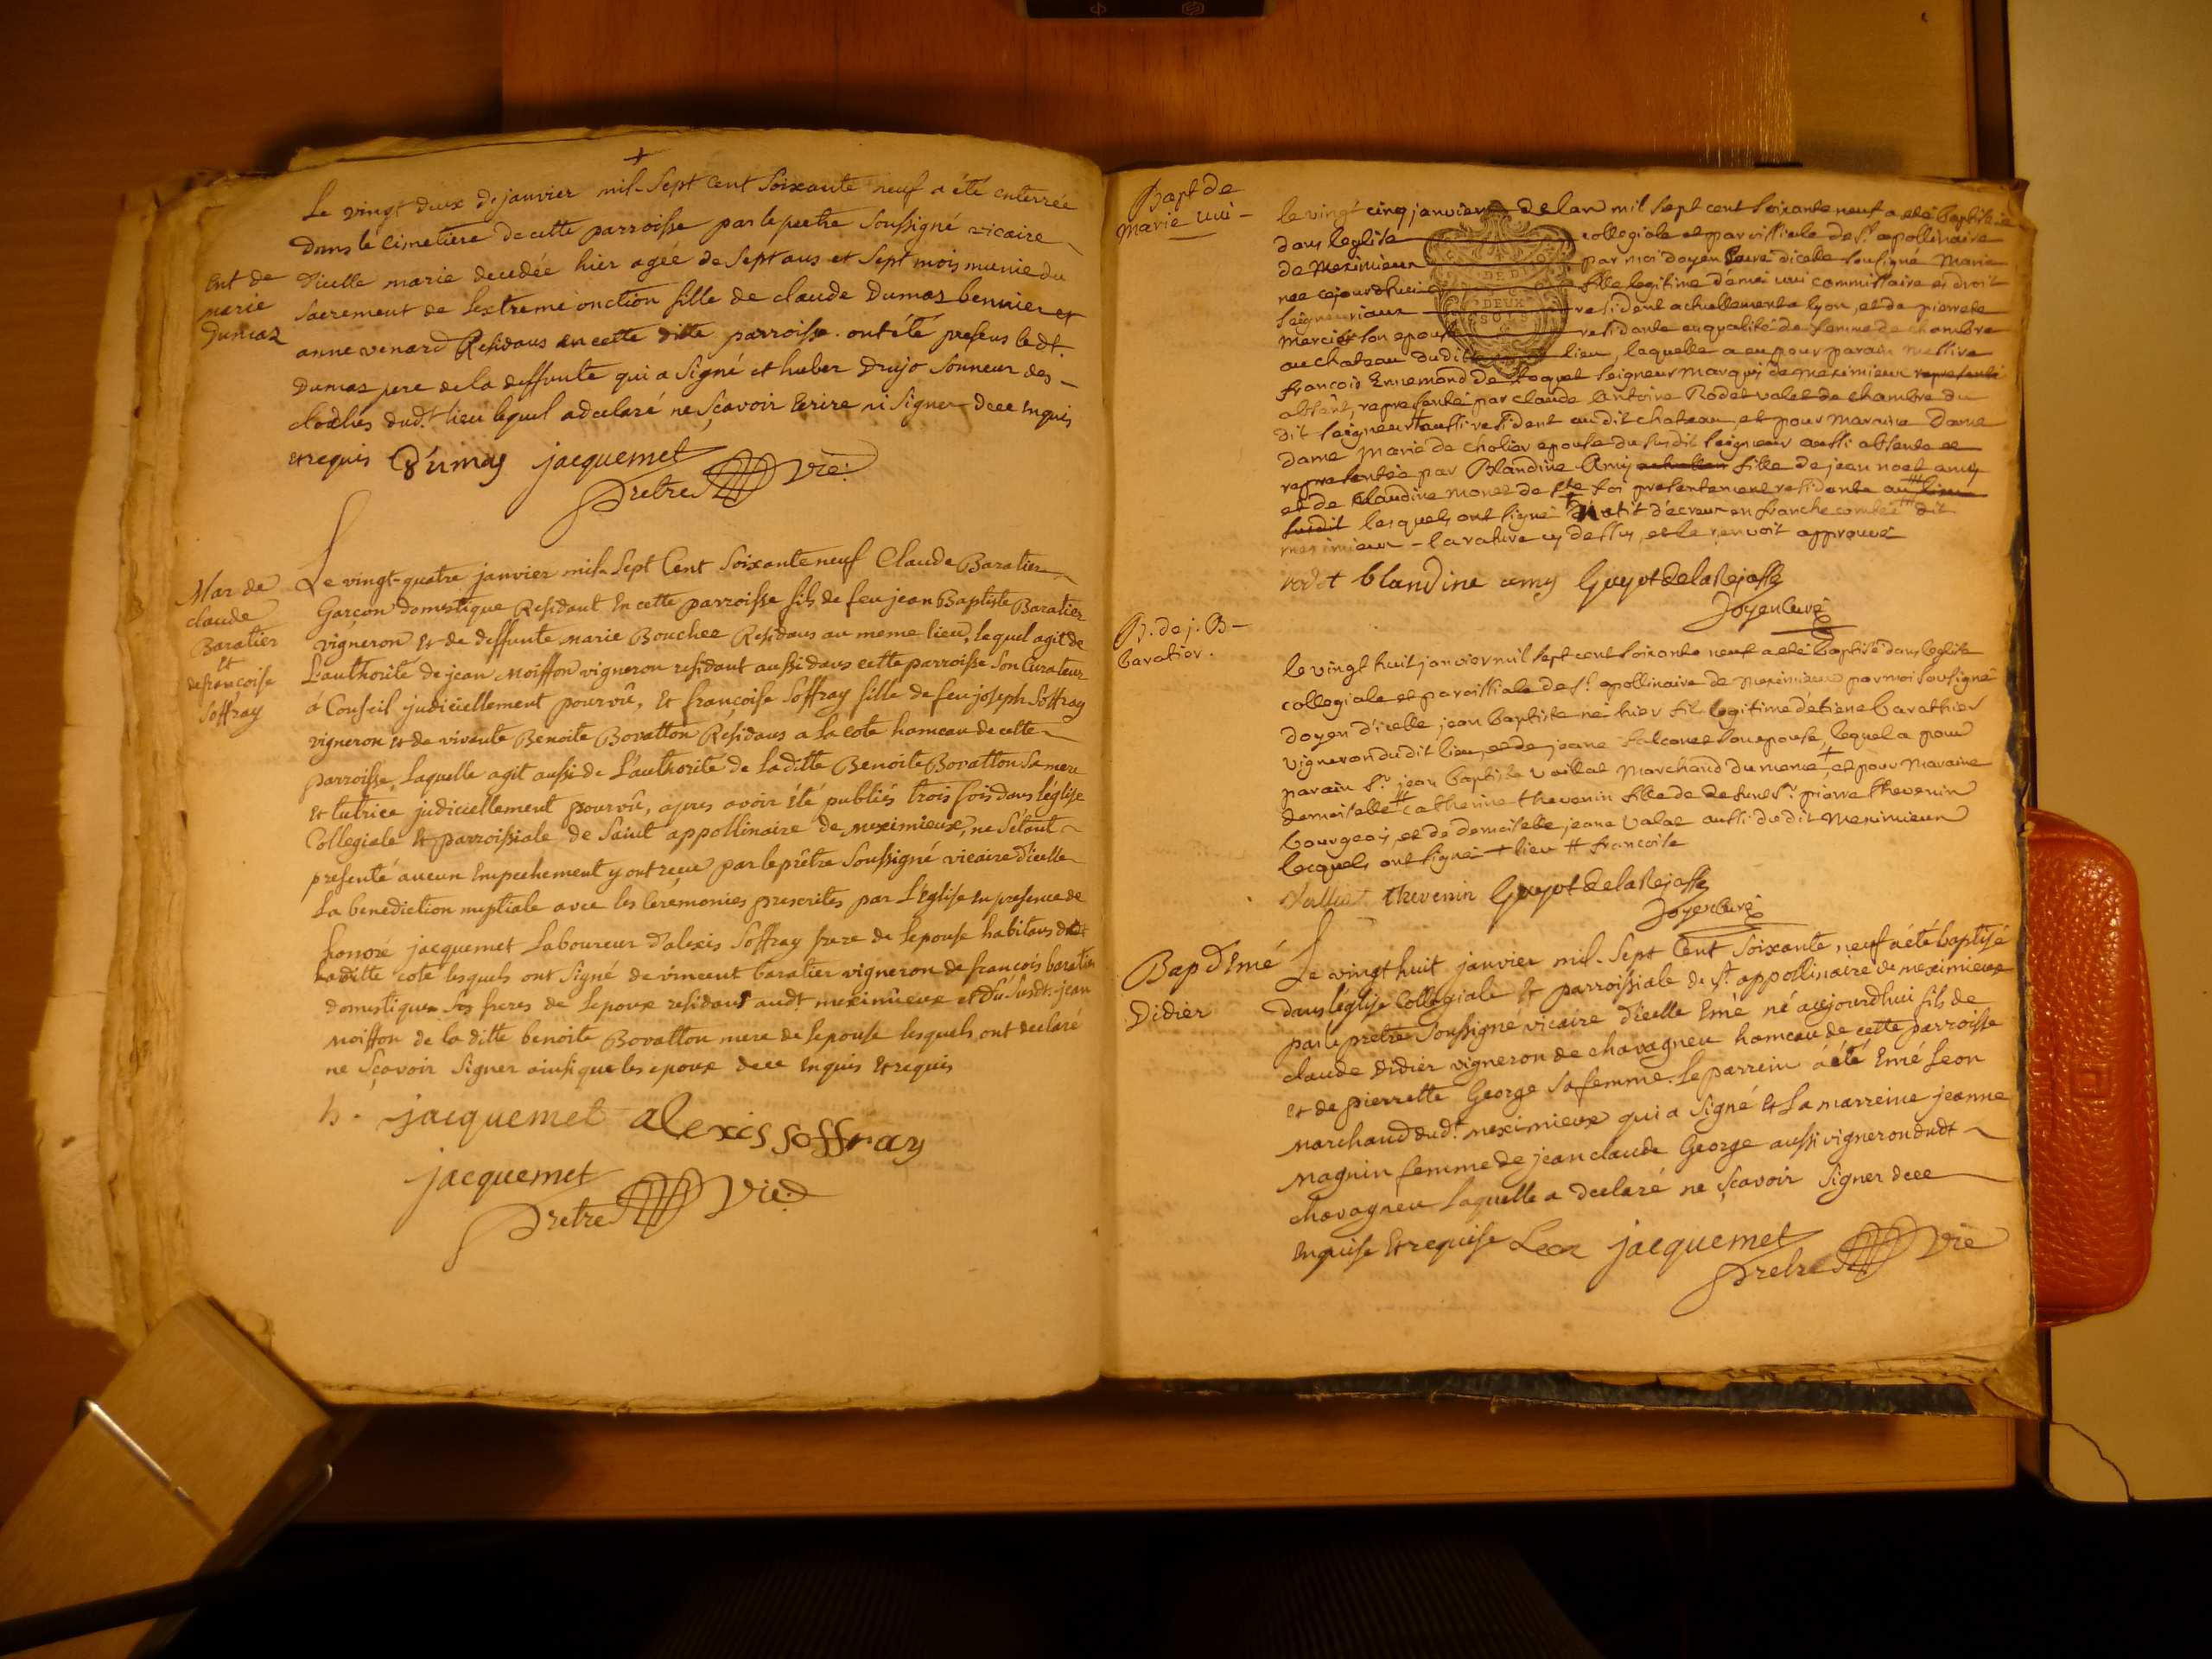 +
Le vingt deux de janvier mil Sept Cent Soixante neuf a été enterrée
dans le cimetiere de cette parroisse par le pretre Soussigné vicaire
d'icelle marie decedée hier agée de Sept ans et Sept mois munie du
Sacrement de Lextreme onction fille de claude Dumas bennier et
anne venard Residans en cette ditte parroisse. ont été presens le dt.
Dumas pere de la deffunte qui a Signé et huber Drujo Sonneur des
cloches dud.t lieu lequel a declaré ne Sçavoir Ecrire ni Signer de ce Enquis
et requis Dumas jacquemet
pretre vic:
Ent de
marie
Dumas
Mar de
claude
Baratier
et
de françoise
Soffray
Le vingt-quatre janvier mil Sept Cent Soixante neuf Claude Baratier
Garçon domestique Residant En cette parroisse fils de feu jean Baptiste Baratier
vigneron et de deffunte marie Bouchee Residans au meme lieu, lequel agit de
L'authorité de jean Moiffon vigneron residant aussi dans cette parroisse Son Curateur
à Conseil judiciellement pourvû, et françoise Soffray fille de feu joseph Soffray
vigneron et de vivente Benoite Bovatton Residans a La cote hameau de cette
parroisse, Laquelle agit aussi de L'authorité de La ditte Benoite Bovatton Sa mere
et tutrice judiciellement pourvû, apres avoir été publiés trois fois dans léglise
Collegiale et parroissiale de Saint appollinaire de meximieux, ne S'étant
presenté aucun Empechement y ont reçu par le prêtre Soussigné vicaire d'icelle
La benediction nuptiale avec les Ceremonies prescrites par L'église En presence de
honoré jacquemet Laboureur d'alexis Soffray frere de lepouse habitans
laditte cote lesquels ont Signé de vincent baratier vigneron de françois baratier
domestique Ses freres de Lepoux residans audt meximieux et du Susdt. jean
Moiffon de la ditte benoite Bovatton mere de lepouse lesquels ont declaré
ne Sçavoir Signer ainsi que les epoux de ce Enquis et requis
h. jacquemet alexis soffray
jacquemet
pretre vic:
Bapt de
marie uui
le vingt cinq janvier de lan mil sept cent soixante neuf a eté baptisée
dans leglise collegiale et paroissiale de St. apollinaire
de Meximieux par moi doyen Curé dicelle sousigné Marie
DE DIJO
DEUX
SOLS
née cejourdhui fille legitime d'emé uui commissaire es droit
seigneuriaux resident actuellement a lyon, et de pierrete
Mercier son epouse residante en qualité de femme de chambre
au chateau dudit lieu, laquelle a eu pour parain Messire
françois Ennemond de seigneur Marquis de Meximieux
absent, representé par claude Antoine Rodet valet de chambre du
dit seigneur aussi resident au dit chateau, et pour Maraine Dame
dame Marie de Cholier epouse du susdit seigneur aussi absente et
representée par Blandine Amy fille de jean noel amy
et de Claudine Monet de Ste foi presentement residente
lesquels ont signé d'ecreux en franche comtée dit
meximieux - la rature cy dessus, et le renvoit approuvé
rodet blandine amy Guyot de la Rejasse
Doyen Curé
B. de j. B
baratier.
le vingt huit janvier mil sept cent soixante neuf a eté baptisé dans leglise
collegiale et paroissiale de St. apollinaire de Meximieux par moi sousigné
doyen d'icelle, jean baptiste né hier fils legitime d'étiene barathier
vigneron du dit lieu, et de jeane falconet son epouse, lequel a pour
parain Sr. jean baptiste Marchand du meme +, et pour Maraine
demoiselle # catherine thevenin fille de defunt Sr. pierre thevenin
bourgeois, et de demoiselle jeane Valat aussi du dit Meximieux
lesquels ont signé + lieu # françoise
thevenin Guyot de la Rejasse
Doyen Curé
Bap d'Emé
Didier
Le vingt huit janvier mil Sept Cent Soixante neuf a été baptisé
dans léglise Collegiale et parroissiale de St. appollinaire de meximieux
par le pretre Soussigné vicaire d'icelle Emé né aujourdhui fils de
claude Didier vigneron de chavagneu hameau de cette parroisse
et de pierrette George Sa femme. Le parrein a été Emé Leon
marchand dud.t meximieux qui a Signé et La marreine jeanne
magnin femme de jean claude George aussi vigneron dudt
chavagneu Laquelle a declaré ne Sçavoir Signer de ce
Enquise et requise Leon jacquemet
pretre vic